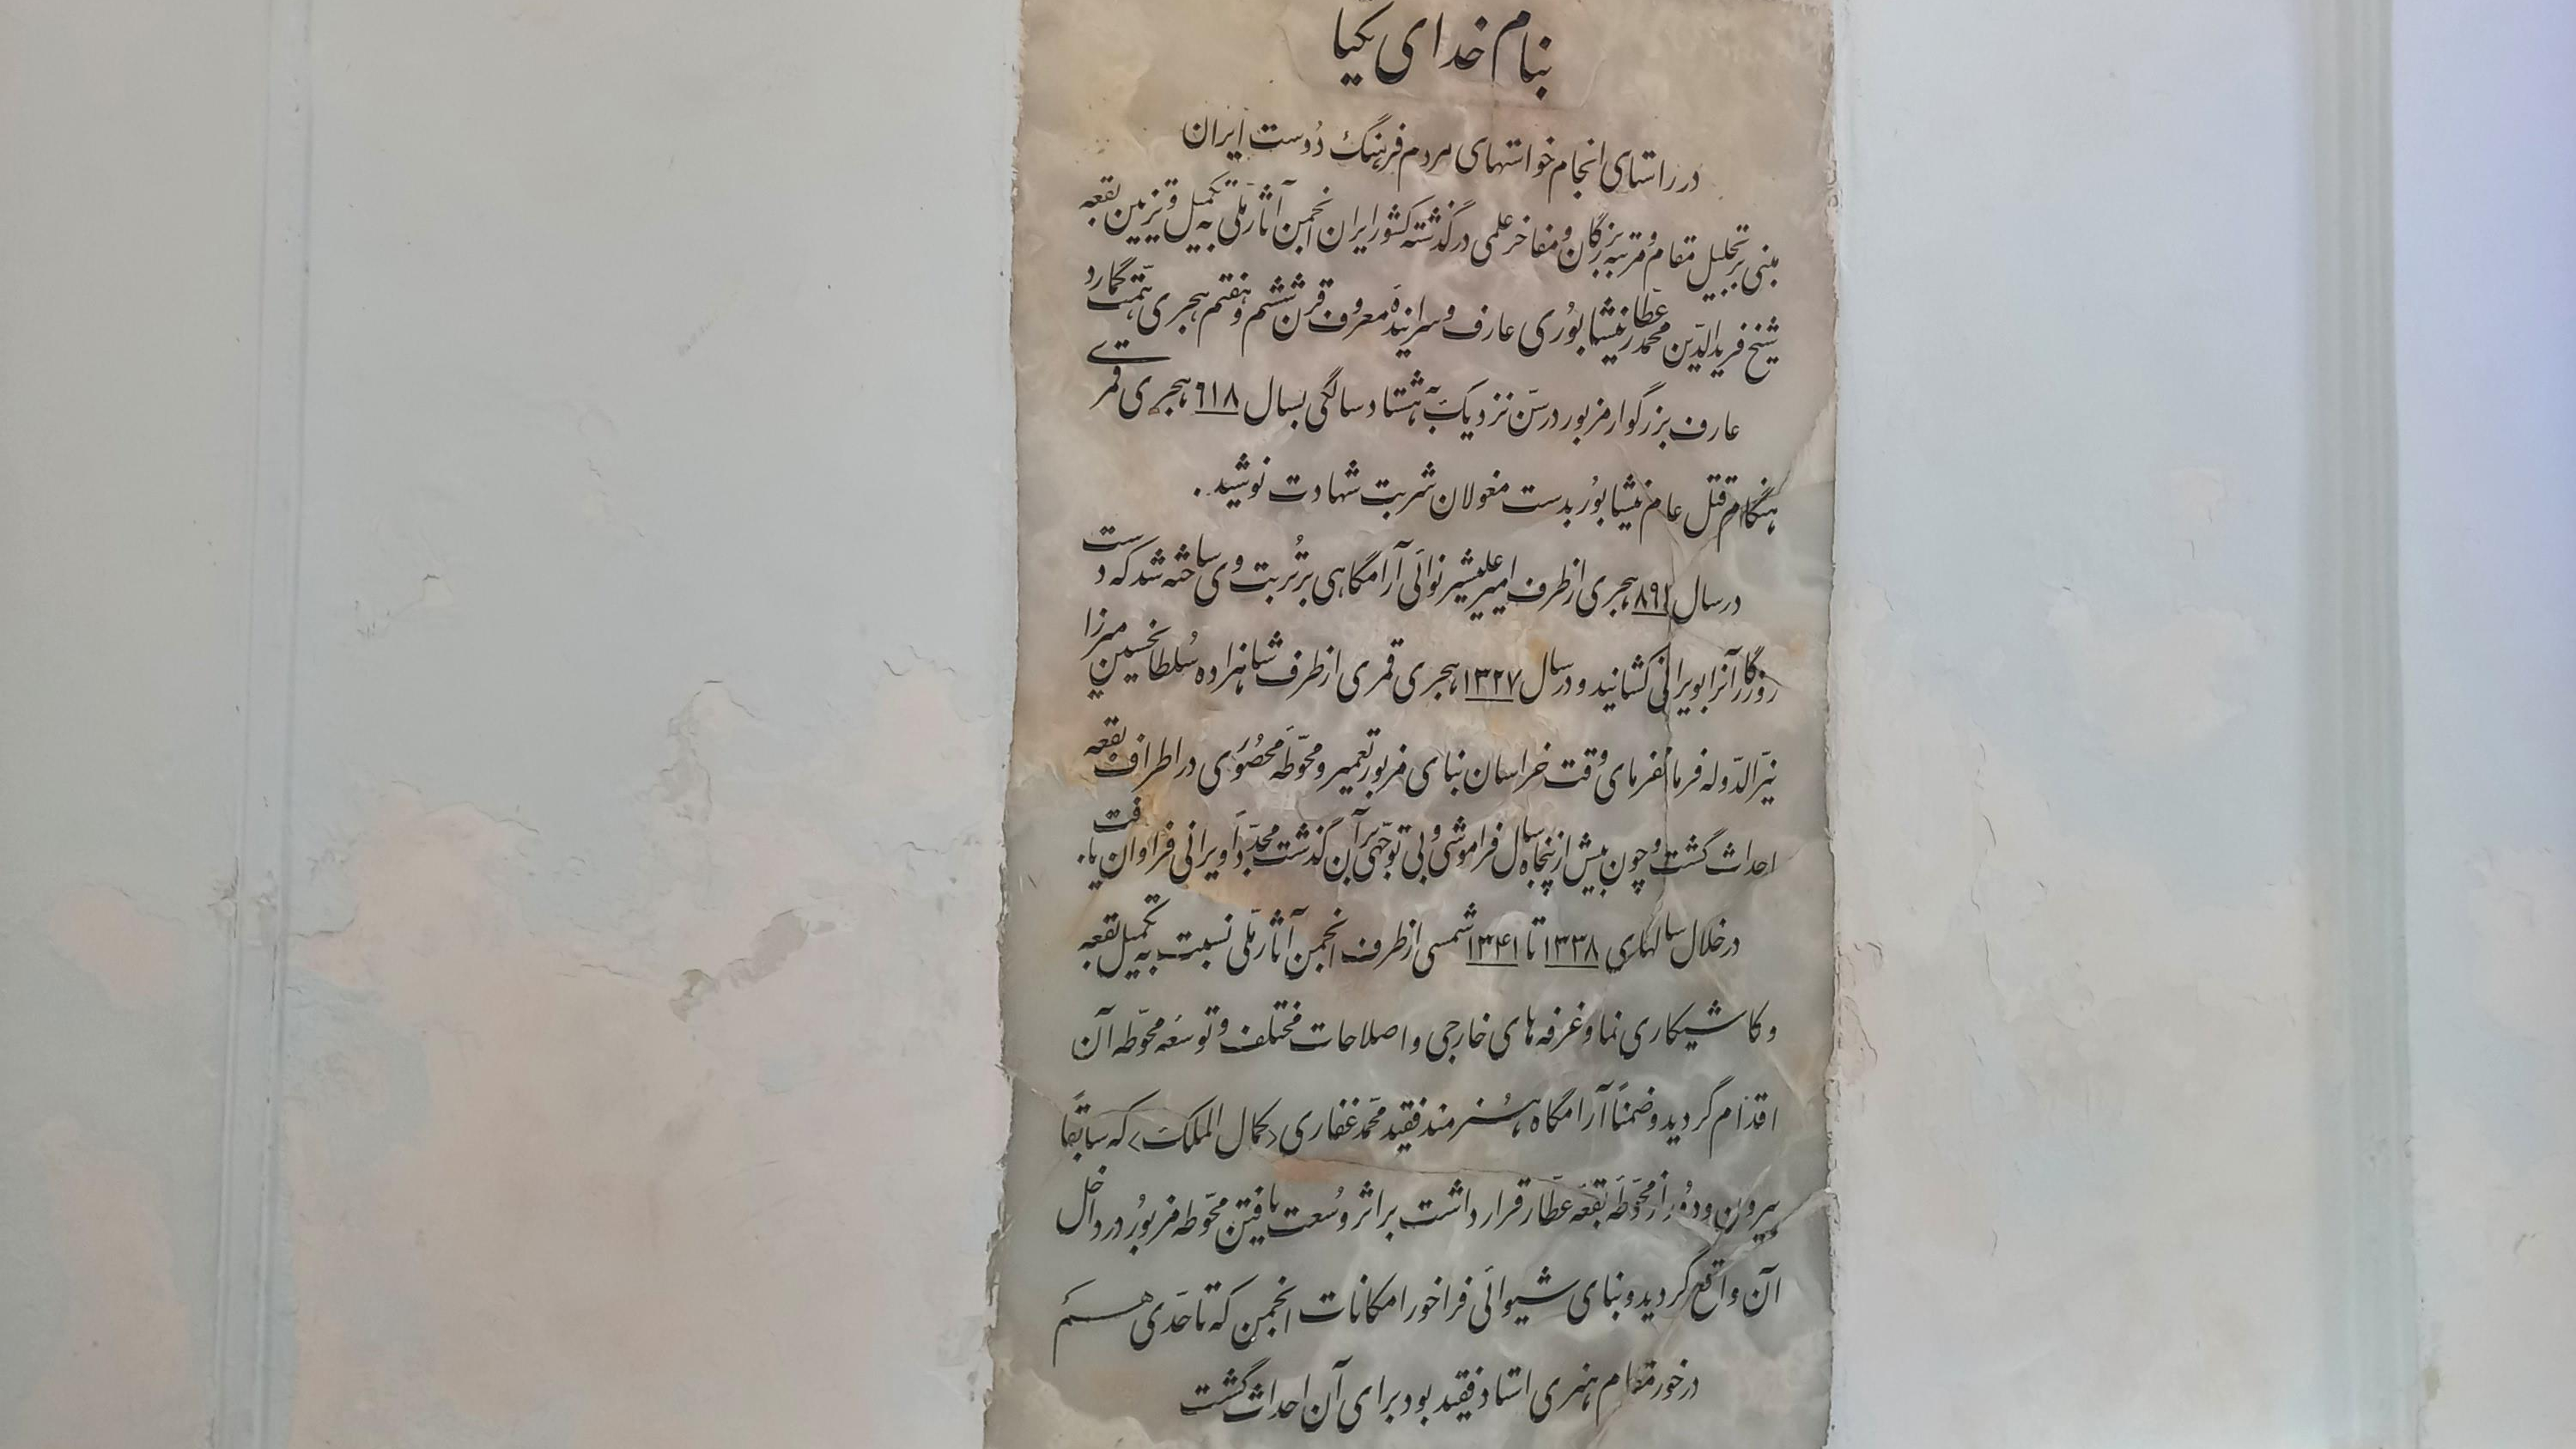 بنام خدای یکتا
در راستای انجام خواستهای مردم فرهنگ دوست ایران
مبنی بر تجلیل مقام و مرتبه بزرگان و مفاخر علمی در گذشته کشور ایران انجمن آثار ملّی به تکمیل و تزیین بقعه
شیخ فریدالدّین محمد عطار نیشابوُری عارف و سراینده معروف قرن ششم و هفتم هجری همّت گمارد
عارف بزرگوار مزبور در سنّ نزدیک به هشتاد سالگی بسال ٦١٨ هجری قمری
هنگام قتل عام نیشابوُر بدست مغولان شربت شهادت نوشید.
در سال ٨٩١ هجری از طرف امیر علیشیر نوائی آرامگاهی بر تُربت وی ساخته شد که دست
روزگار آنرا بویرانی کشانید و در سال ١٣٢٧ هجری قمری از طرف شاهزاده سُلطانحسین میرزا
نیّرالدّوله فرمانفرمای وقت خراسان بنای مزبور تعمیر و محوّطه محصُوری در اطراف بقعه
احداث گشت و چون بیش از پنجاه سال فراموشی و بی توجّهی بر آن گذشت مجدّداً ویرانی فراوان یافت.
در خلال سالهای ١٣٣٨ تا ١٣٤١ شمسی از طرف انجمن آثار ملّی نسبت به تکمیل بقعه
و کاشیکاری نما و غرفه های خارجی و اصلاحات مختلف و توسعه محوّطه آن
اقدام گردید و ضمناً آرامگاه هنرمند فقید محمّد غفاری <کمال الملک> که سابقاً
بیرون و دوُر از محوّطه بقعه عطّار قرار داشت بر اثر وُسعت یافتن محوّطه مزبوُر در داخل
آن واقع گردید و بنای شیوائی فراخور امکانات انجمن که تا حدّی هم
در خور مقام هنری استاد فقید بود برای آن احداث گشت